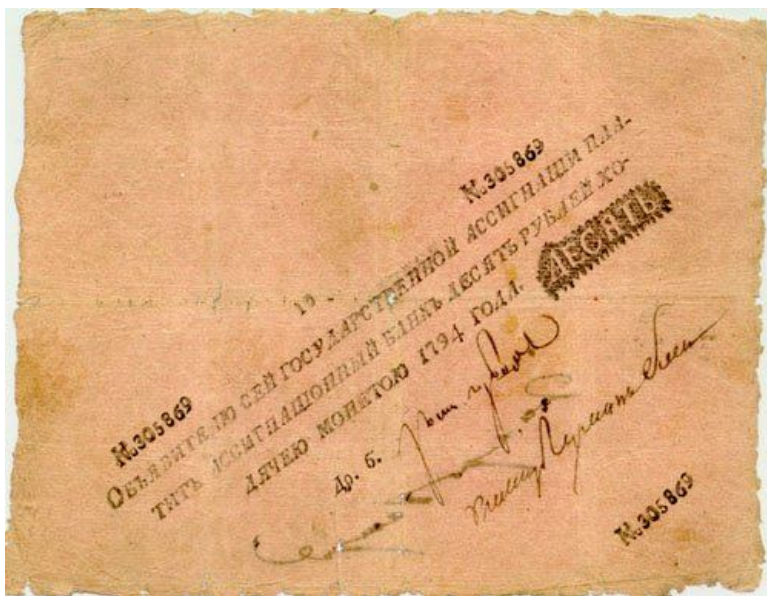 №305869
10
№305869
Объявителю сей государственной ассигнации пла-
титъ ассигнационный банкъ десять рублей хо-
дячею монетою 1794 года.
ДЕСЯТЬ
Др. б.
№305869